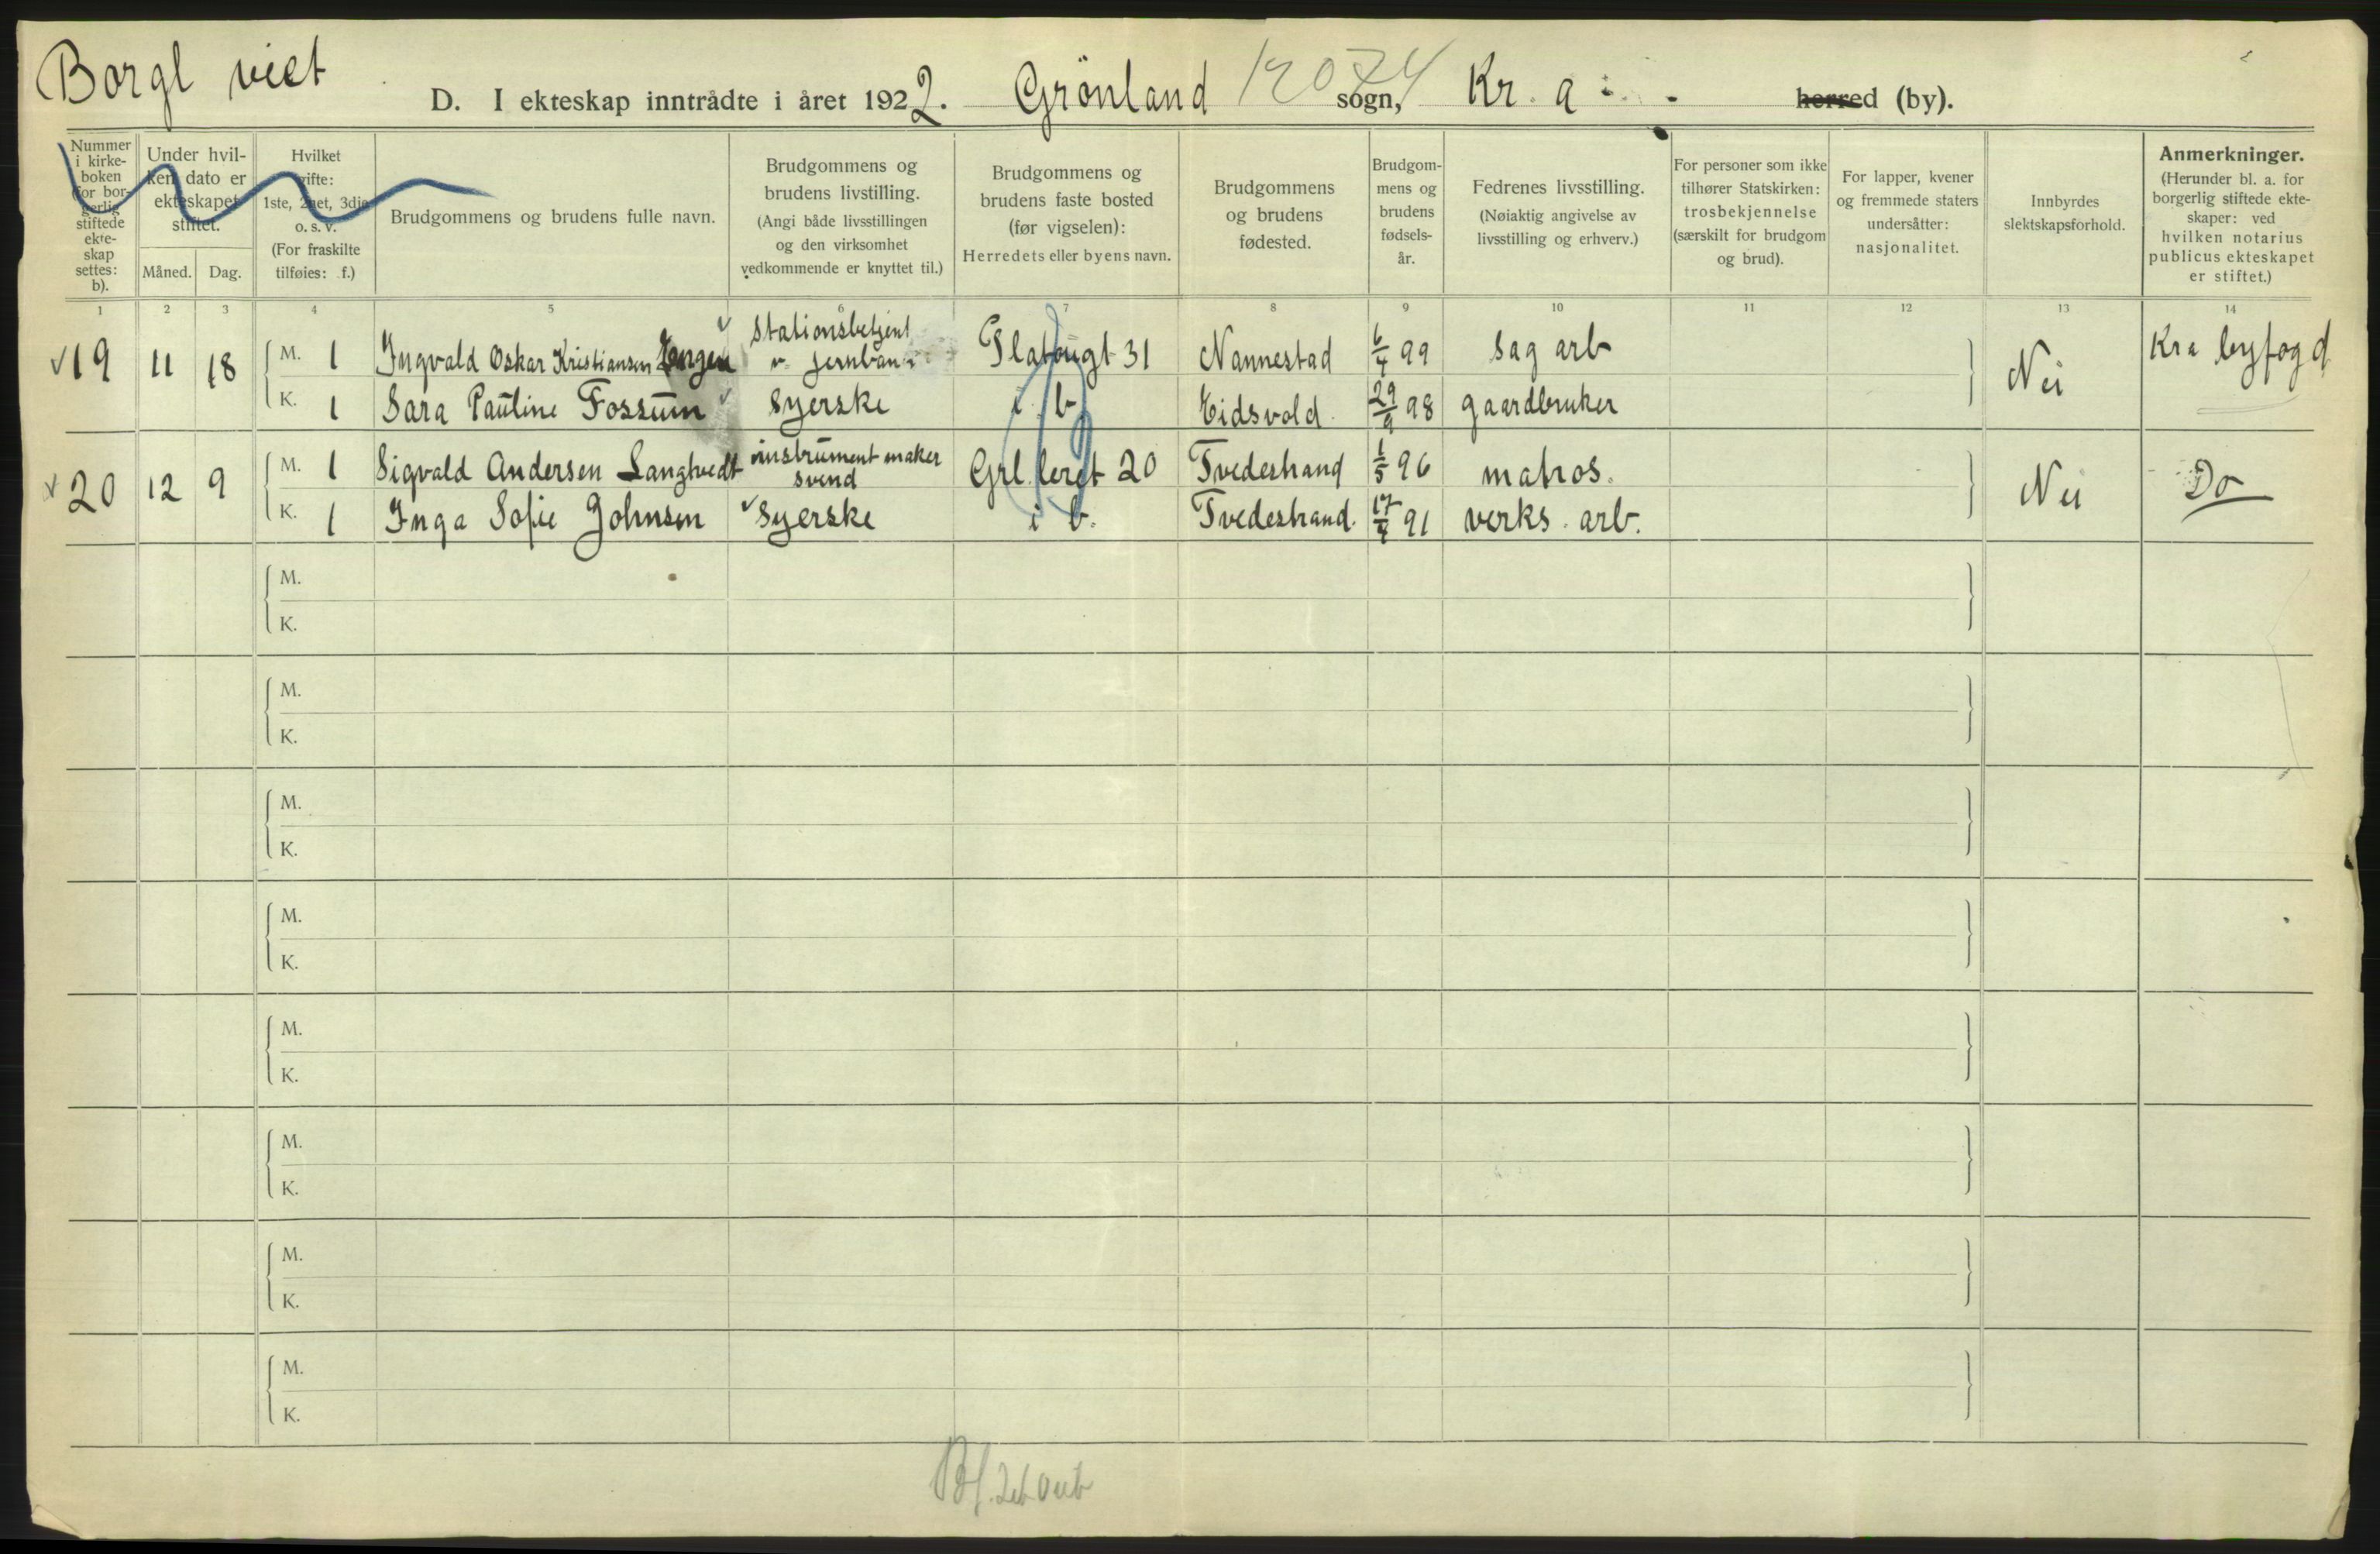 Borgl viet
D. I ekteskap inntrådte i året 1922. Grönland sogn, Kr. a herred (by).
12074
Nummer i kirke-boken for bor-gerlig stiftede ekte-skap settes: b).
Under hvil-ken dato er ekteskapet stiftet.
Måned. Dag.
Hvilket gifte: 1ste, 2net, 3dje o. s. v. (For fraskilte tilføies: f.)
Brudgommens og brudens fulle navn.
Brudgommens og brudens livstilling. (Angi både livsstillingen og den virksomhet vedkommende er knyttet til.)
Brudgommens og brudens faste bosted (før vigselen): Herredets eller byens navn.
Brudgommens og brudens fødested.
Brudgom-mens og brudens fødsels-år.
Fedrenes livsstilling. (Nøiaktig angivelse av livsstilling og erhverv.)
For personer som ikke tilhører Statskirken: trosbekjennelse (særskilt for brudgom og brud).
For lapper, kvener og fremmede staters undersåtter: nasjonalitet.
Innbyrdes slektskapsforhold.
Anmerkninger. (Herunder bl. a. for borgerlig stiftede ekte-skaper: ved hvilken notarius publicus ekteskapet er stiftet.)
1 2 3 4 5 6 7 8 9 10 11 12 13 14
19 11 18 M. 1 Ingvald Oskar Kristiansen Stationsbetjent v. jernban Platougt 31 Nannestad 6/4 99 sag arb Nei Kra byfogd
K. 1 Sara Pauline Fossum syerske i b Eidsvold 29/9 98 gaardbruker
20 12 9 M. 1 Sigvald Andersen Langtvedt instrument maker svend Grl. leret 20 Tvedestrand 1/5 96 matros. Nei Do
K. 1 Inga Sofie Johnsen Syerske i b. Tvedestrand. 17/4 91 verks. arb.
M.
K.
M.
K.
M.
K.
M.
K.
M.
K.
M.
K.
M.
K.
M.
K.